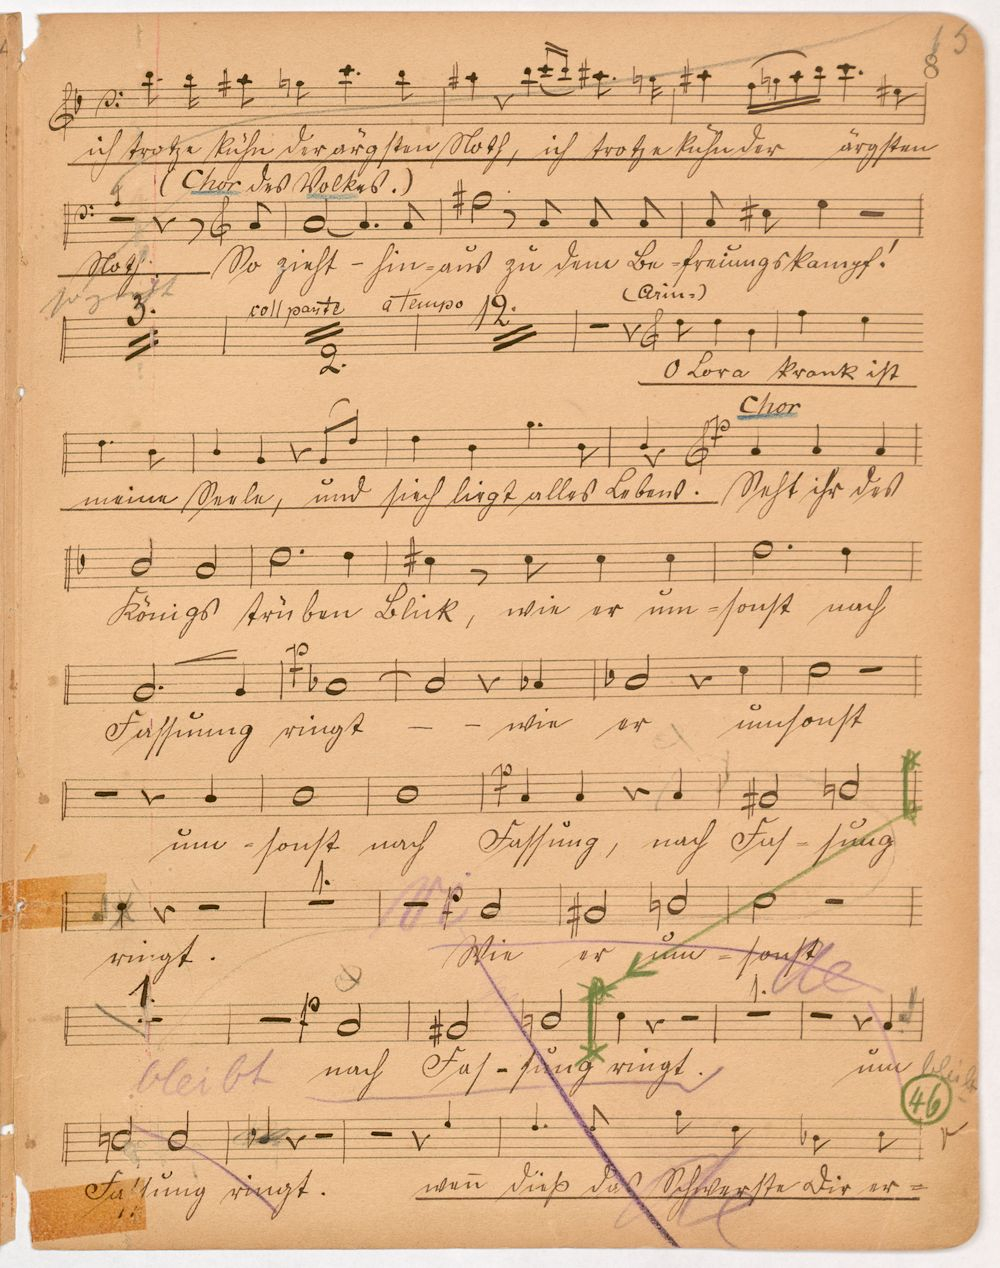 15
8
ich trotze kühn der ärgsten Noth, ich trotze kühn der ärgsten
(Chor des Volkes.)
1
Noth. So zieht - hin=aus zu dem Be=freiungskampf!
so zieht
3. coll parte a tempo 12. (Arin=)
2.
O Lora krank ist
Chor
p
meine Seele, und siech liegt alles Lebens. Seht ihr des
Königs trüben Blick, wie er um=sonst nach
p
Fassung ringt — - wie er umsonst
p
um=sonst nach Fassung, nach Fas=sung
1. p
ringt. Wie er um=sonst
1. p 1.
bleibt nach Fas=sung ringt. um
bleibt
46
Fassung ringt. wenn dieß das Schwerste Dir er=